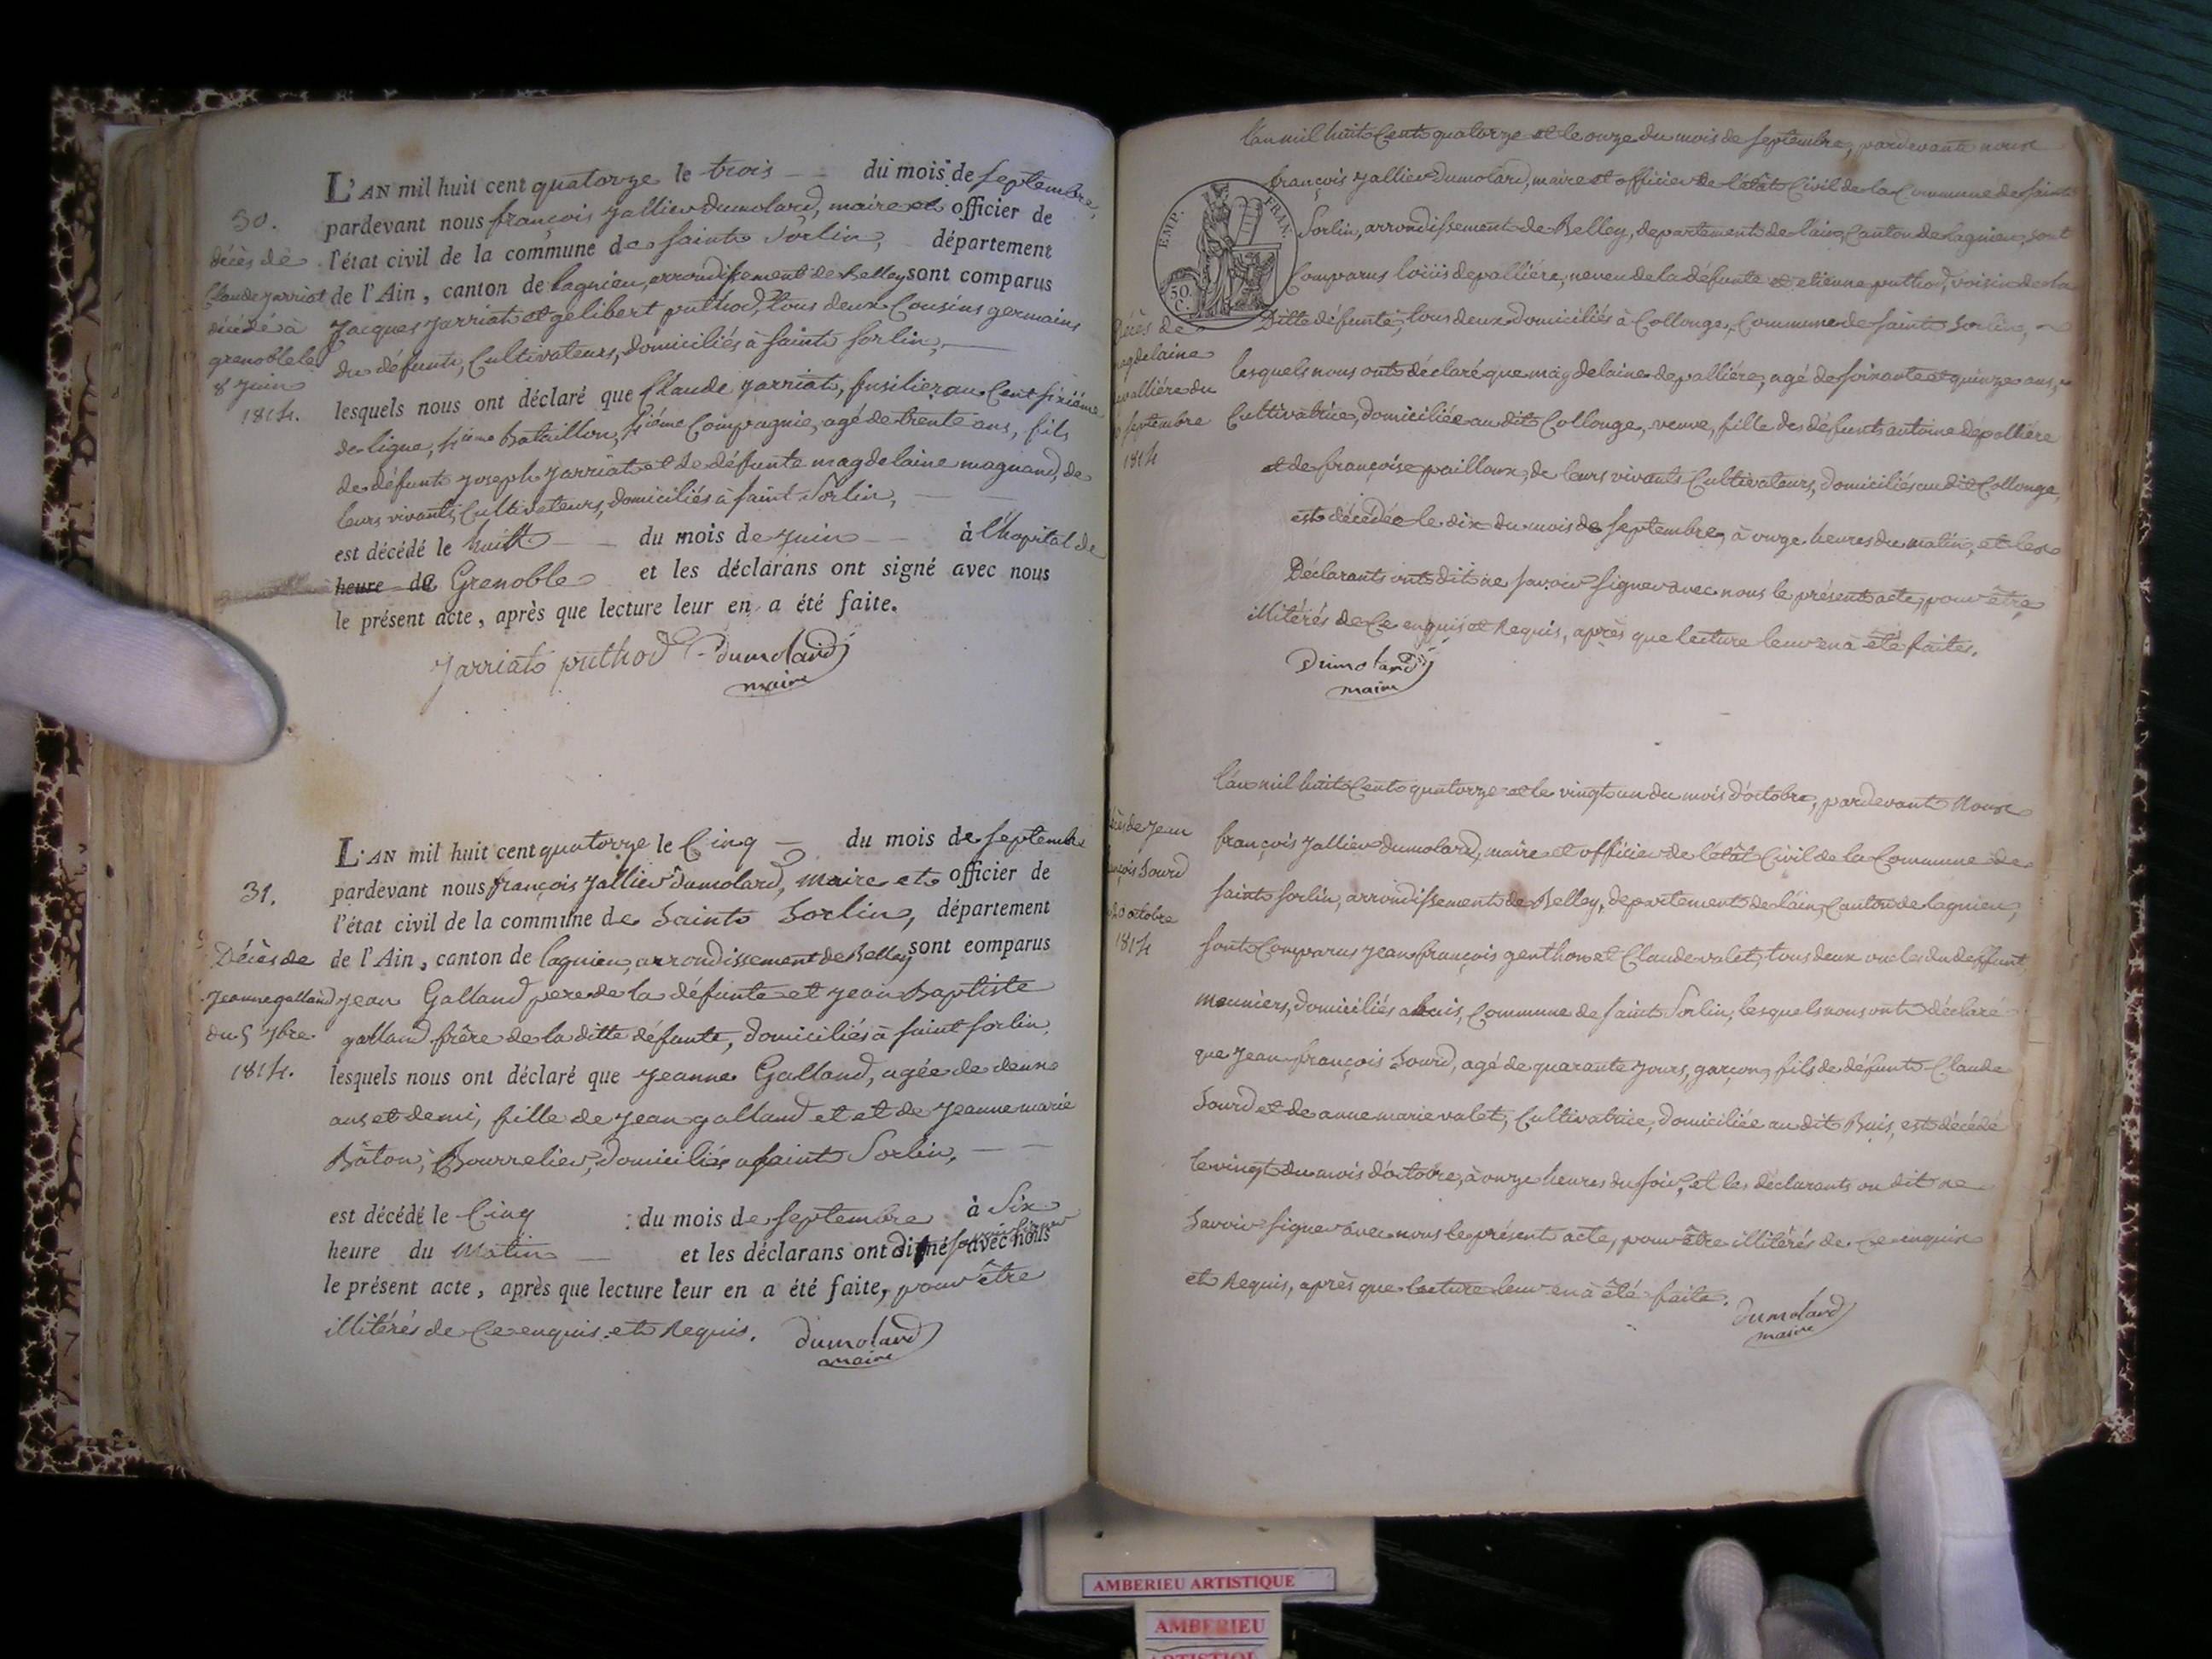 30.
décès de
Claude Jarriat
décédé à
grenoble le
8 Juin
1814.
L'AN mil huit cent quatorze le trois — du mois de septembre,
pardevant nous françois Jallier Dumolard, maire et officier de
l'état civil de la commune de saint Sorlin, département
de l'Ain, canton de lagnieu, arrondissement de Belley sont comparus
Jacques Jarriat et gelibert puthod, tous deux Cousins germains
du défunt, Cultivateurs, domiciliés à saint sorlin, —
lesquels nous ont déclaré que Claude Jarriat, fusilier au Cent sixiéme
de ligne, 4ieme Bataillon, 4iéme Compagnie, agé de trente ans, fils
de défunt Joseph Jarriat et de défunte magdelaine magnand, de
leurs vivants Cultivateurs, domiciliés à saint Sorlin, — —
est décédé le huit — du mois de juin — à l'hopital de
heure de Grenoble et les déclarans ont signé avec nous
le présent acte, après que lecture leur en a été faite.
Jarriat puthod Dumolard
maire
31.
Décès de
Jeanne galland
du 5 7bre
1814.
L'AN mil huit cent quatorze le Cinq — du mois de septembre
pardevant nous françois Jallier Dumolard, maire et officier de
l'état civil de la commune de Saint Sorlin, département
de l'Ain, canton de lagnieu, arrondissement de Belley sont comparus
Jean Galland pere de la défunte et Jean Baptiste
galland frère de la ditte défunte, domiciliés à saint sorlin,
lesquels nous ont déclaré que Jeanne Galland, agée de deux
ans et demi, fille de Jean galland et et de Jeanne marie
Bâton, Bourrelier, domiciliés a saint Sorlin, — —
est décédé le Cinq du mois de septembre à Six
heure du Matin — et les déclarans ont dit ne savoir signer avec nous
le présent acte, après que lecture leur en a été faite, pour être
illitérés de Ce enquis et Requis. Dumolard
maire
EMP. FRAN.
50
C.
Décès de
magdelaine
depalliére du
septembre
1814
L'an mil huit Cent quatorze et le onze du mois de septembre, pardevant nous
françois Jallier Dumolard, maire et officier de l'état Civil de la Commune de saint
Sorlin, arrondissement de Belley, departement de l'ain, Canton de lagnieu, sont
Comparus loüis depalliére, neveu de la défunte et etienne puthod, voisin de la
Ditte défunte, tous deux domiciliés à Collonge, Commune de saint Sorlin,
lesquels nous ont déclaré que magdelaine depalliére, agé de soixante et quinze ans,
Cultivatrice, domiciliée au dit Collonge, veuve, fille des défunts antoine depalliére
et de françoise pailloux, de leurs vivants Cultivateurs, domiciliés au dit Collonge,
est décédée le dix du mois de septembre, à onze heures du matin, et les
Déclarants ont dit ne savoir signer avec nous le présent acte, pour être
illitérés de Ce enquis et Requis, après que lecture leur en à été faite.
Dumolard
maire
décès de Jean
françois Sourd
20 octobre
1814
L'an mil huit Cent quatorze et le vingt un du mois d'octobre, pardevant Nous
françois Jallier Dumolard, maire et officier de l'état Civil de la Commune de
saint sorlin, arrondissement de Belley, departement de l'ain, Canton de lagnieu,
sont Comparus Jean françois genthon et Claude valet, tous deux oncles du deffunt
meuniers, domiciliés a buis, Commune de saint Sorlin, lesquels nous ont déclaré
que Jean françois Sourd, agé de quarante Jours, garçon, fils de défunt Claude
Sourd et de anne marie valet, Cultivatrice, domiciliée au dit Buis, est décédé
le vingt du mois d'octobre, à onze heures du soir, et les déclarants on dit ne
Savoir signer avec nous le présent acte, pour être illitérés de Ce enquis
et Requis, après que lecture leur en à été faite. Dumolard
maire
AMBERIEU ARTISTIQUE
AMBERIEU
ARTISTIQUE